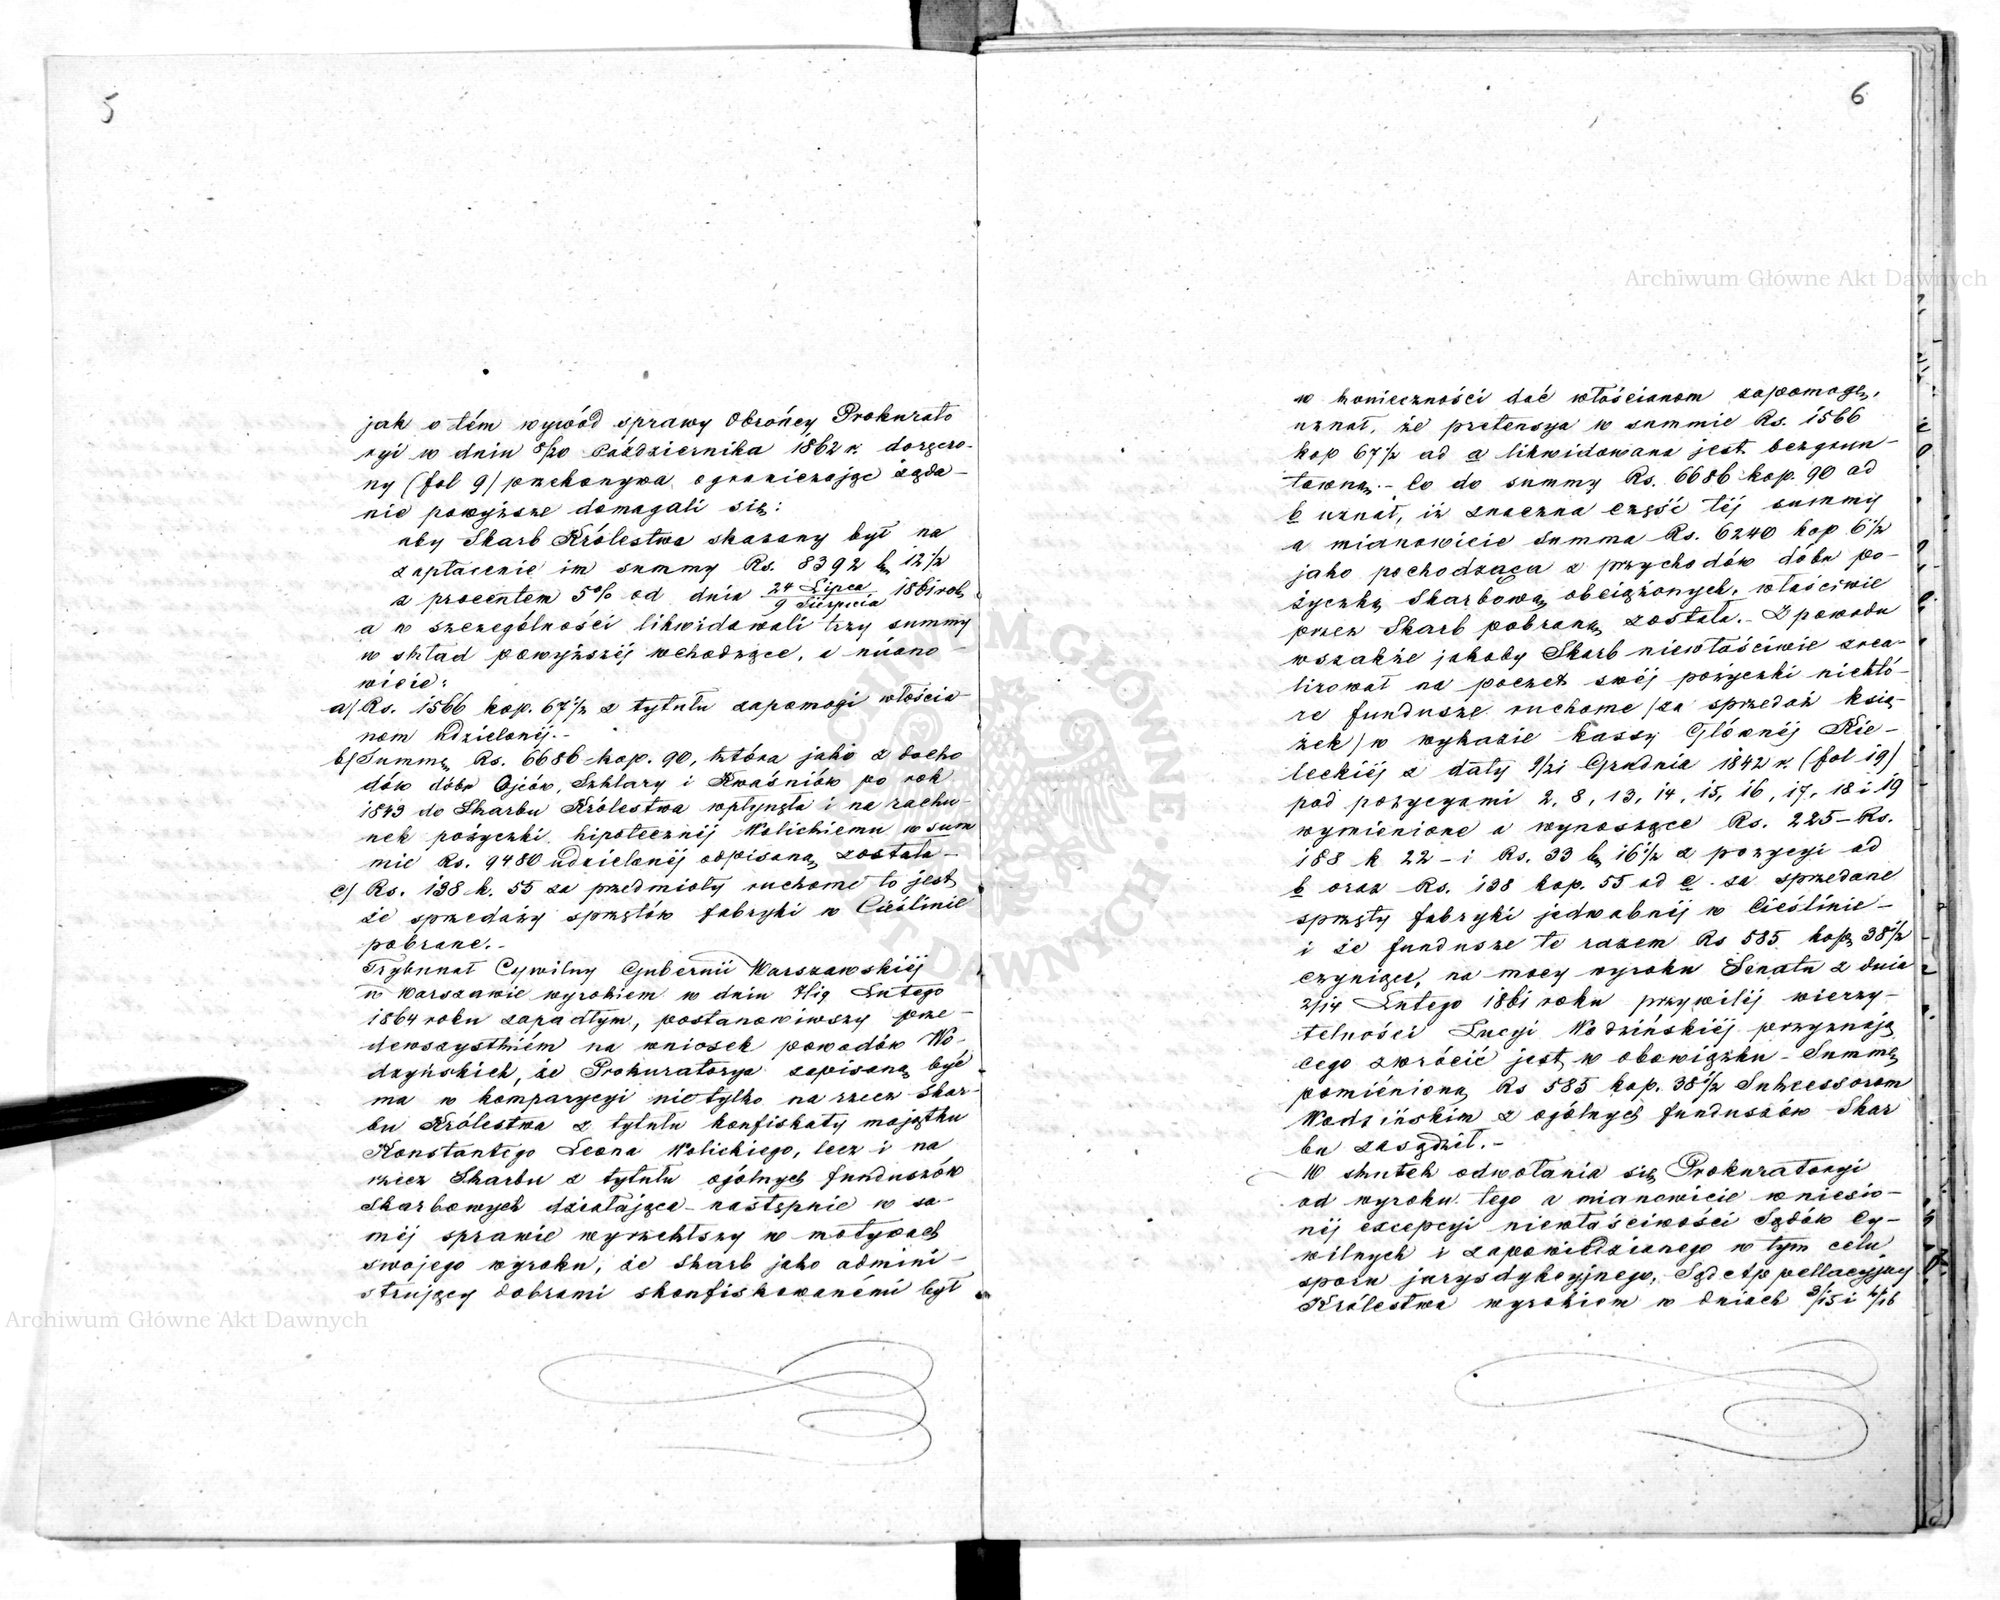 5
jak o tém wywód sprawy Obrońcy Prokurato
ryi w dniu 8/20 Października 1862 r. doręczo-
ny (fol 9) przekonywa, ograniczając żąda-
nie powyższe domagali się:
aby Skarb Królestwa skazany był na
zapłacenie im summy Rs. 8392 k. 12 1/2
z procentem 5% od dnia 24 Lipca / 9 Sierpnia 1861 rok,
a w szczególności likwidowali trzy summy
w skład powyższéj wchodzące, a miano-
wicie:
a/ Rs. 1566 kop. 67 1/2 z tytułu zapomogi włościa-
nom udzielonéj.-
b/ Summę Rs. 6686 kop. 90, która jako z docho
dów dóbr Ojców, Szklary i Kwaśniów po rok
1843 do Skarbu Królestwa wpłynęła i na rachu-
nek pożyczki hipotecznéj Wolickiemu w sum
mie Rs. 9480 udzielonéj odpisaną została-
c/ Rs. 138 k. 55 za przedmioty ruchome to jest
ze sprzedaży sprzętów fabryki w Cieślinie
pobrane.-
Trybunał Cywilny Gubernii Warszawskiéj
w Warszawie wyrokiem w dniu 7/19 Lutego
1864 roku zapadłym, postanowiwszy prze-
dewszystkiém na wniosek powodów Wo-
dzyńskich, że Prokuratorya zapisaną być
ma w komparycyi nietylko na rzecz Skar-
bu Królestwa z tytułu konfiskaty majątku
Konstantego Leona Wolickiego, lecz i na
rzecz Skarbu z tytułu ogólnych funduszów
Skarbowych działająca- następnie w sa-
méj sprawie wyrzekłszy w motywach
swojego wyroku, że Skarb jako admini-
strujący dobrami skonfiskowanémi był
6
w konieczności dać włościanom zapomogę,
uznał, że pretensya w summie Rs. 1566
kop 67 1/2 ad a likwidowana jest bezgrun-
towną.- Co do summy Rs. 6686 kop. 90 ad
b uznał, iż znaczna część téj summy
a mianowicie summa Rs. 6240 kop 6 1/2
jako pochodząca z przychodów dóbr po-
życzką Skarbową obciążonych, właściwie
przez Skarb pobraną została.- Z powodu
wszakże jakoby Skarb niewłaściwie zrea-
lizował na poczet swéj pożyczki niektó-
re fundusze ruchome (za sprzedaż ksią-
żek) w wykazie kassy Głównéj Kie-
leckiéj z daty 9/21 Grudnia 1842 r. (fol 19)
pod pozycyami 2, 8, 13, 14, 15, 16, 17, 18 i 19
wymienione a wynoszące Rs. 225- Rs.
188 k 22- i Rs. 33 k. 16 1/2 z pozycyi ad
b oraz Rs. 138 kop. 55 ad c. za sprzedane
sprzęty fabryki jedwabnéj w Cieślinie-
i że fundusze te razem Rs 585 kop. 38 1/2
czyniące, na mocy wyroku Senatu z dnia
2/14 Lutego 1861 roku przywiléj wierzy-
telności Łucyi Wodzińskiéj przyznają
cego zwrócić jest w obowiązku- Summę
pomiénioną Rs 585 kop. 38 1/2 Sukcessorom
Wodzińskim z ogólnych funduszów Skar
bu zasądził.-
W skutek odwołania się Prokuratoryi
od wyroku tego a mianowicie wniesio-
néj excepcyi niewłaściwości Sądów Cy-
wilnych i zapowiedzianego w tym celu
sporu jurysdykcyjnego, Sąd Appellacyjny
Królestwa wyrokiem w dniach 3/15 i 4/16
Archiwum Główne Akt Dawnych
Archiwum Główne Akt Dawnych